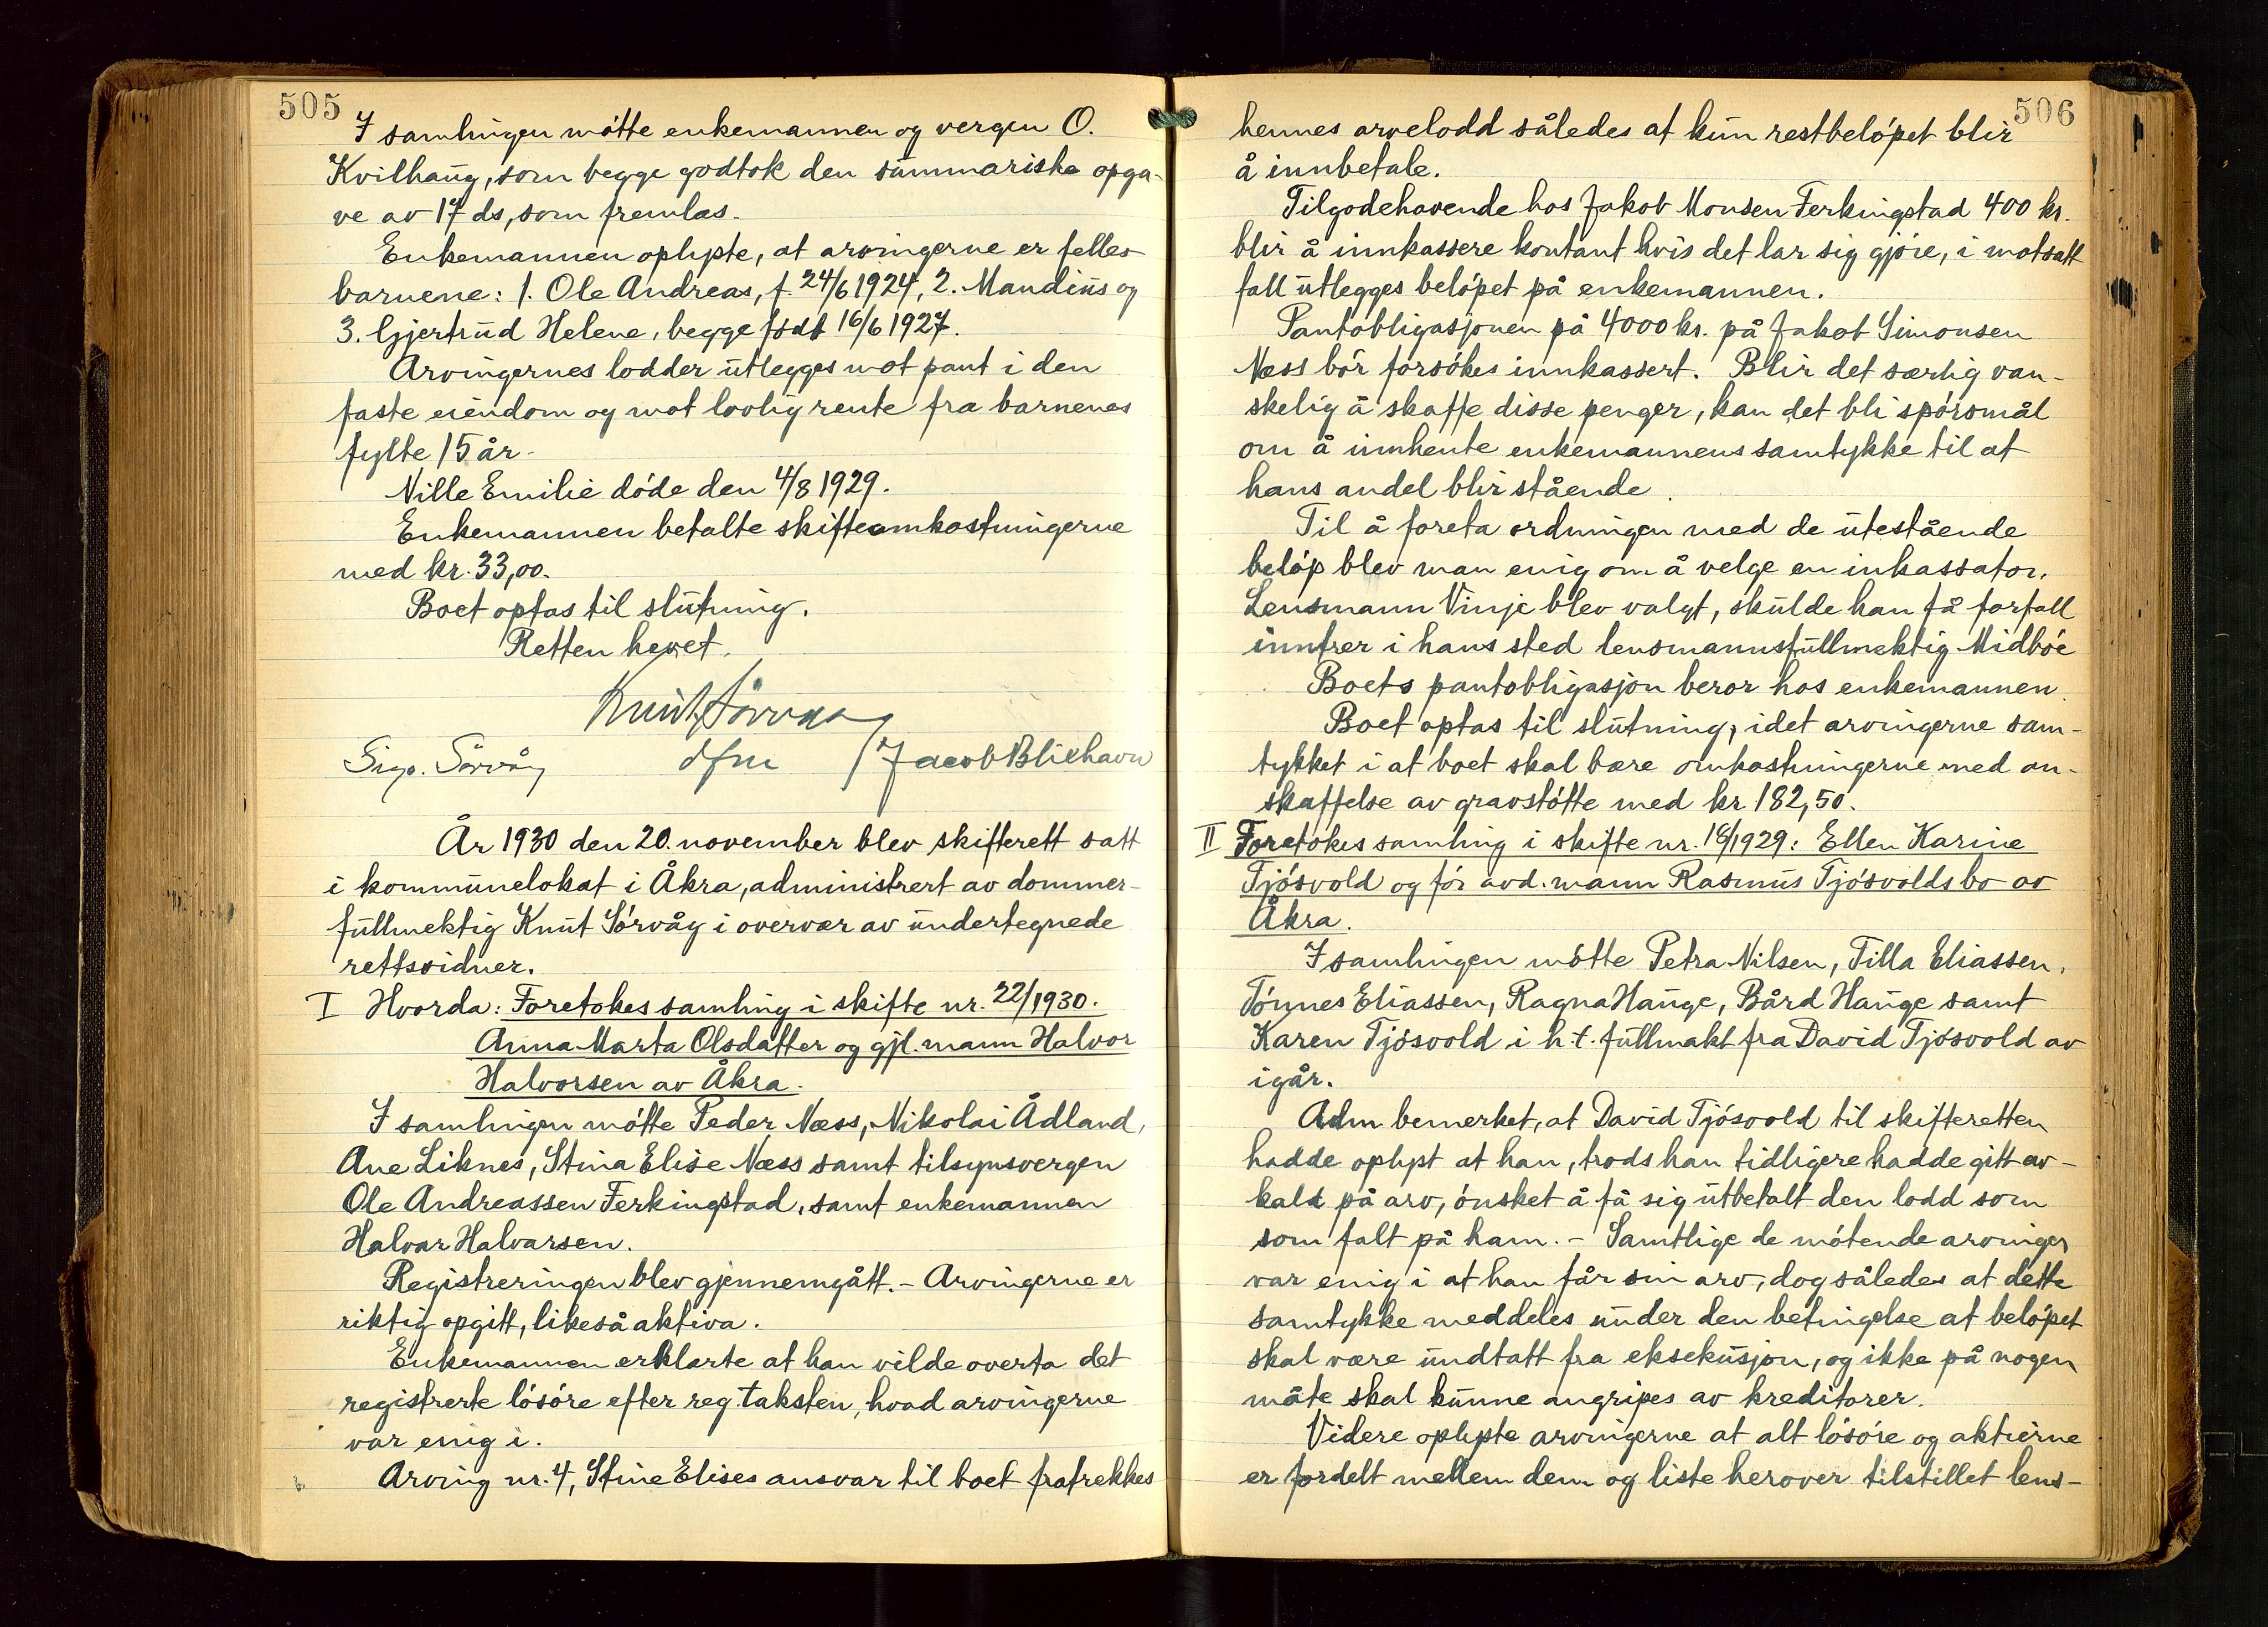 505
I samlingen møtte enkemannen og vergen O.
Kvilhaug, som begge godtok den summariske opga-
ve av 17 ds, som fremlas.
Enkemannen oplyste, at arvingerne er felles
barnene: 1. Ole Andreas, f. 24/6 1924, 2. Mandius og
3. Gjertrud Helene, begge født 16/6 1927.
Arvingernes lodder utlegges mot pant i den
faste eiendom og mot lovlig rente fra barnenes
fylte 15 år.
Nille Emilie døde den 4/8 1929.
Enkemannen betalte skifteomkostningerne
med kr. 33,00.
Boet optas til slutning.
Retten hevet.
Knut Sørvåg
Sigv. Sørvåg dfm Jacob Blikhavn
År 1930 den 20. november blev skifterett satt
i kommunelokat i Åkra, administrert av dommer-
fullmektig Knut Sørvåg i overvær av undertegnede
rettsvidner.
I Hvorda: Foretokes samling i skifte nr. 22/1930.
Anna Marta Olsdatter og gjl. mann Halvor
Halvorsen av Åkra.
I samlingen møtte Peder Næss, Nikolai Ådland,
Ane Liknes, Stina Elise Næss samt tilsynsvergen
Ole Andreassen Ferkingstad, samt enkemannen
Halvar Halvarsen.
Registreringen blev gjennemgått. - Arvingerne er
riktig opgitt, likeså aktiva.
Enkemannen erklærte at han vilde overta det
registrerte løsøre efter reg. taksten, hvad arvingerne
var enig i.
Arving nr. 4, Stine Elises ansvar til boet fratrekkes
506
hennes arvelodd således at kun restbeløpet blir
å innbetale.
Tilgodehavende hos Jakob Monsen Ferkingstad 400 kr.
blir å innkassere kontant hvis det lar sig gjøre, i motsatt
fall utlegges beløpet på enkemannen.
Pantobligasjonen på 4000 kr. på Jakob Simonsen
Næss bør forsøkes innkassert. Blir det særlig van-
skelig å skaffe disse penger, kan det bli spørsmål
om å innhente enkemannens samtykke til at
hans andel blir stående.
Til å foreta ordningen med de utestående
beløp blev man enig om å velge en inkassator.
Lensmann Vinje blev valgt, skulde han få forfall
inntrer i hans sted lensmannsfullmektig Midbøe
Boets pantobligasjon beror hos enkemannen.
Boet optas til slutning, idet arvingerne sam-
tykket i at boet skal bære omkostningerne med an-
skaffelse av gravstøtte med kr 182,50.
II Foretokes samling i skifte nr. 18/1929: Ellen Karine
Tjøsvold og før avd. mann Rasmus Tjøsvolds bo av
Åkra.
I samlingen møtte Petra Nilsen, Tilla Eliassen,
Tønnes Eliassen, Ragna Hauge, Bård Hauge samt
Karen Tjøsvold i h.t. fullmakt fra David Tjøsvold av
igår.
Adm bemerket, at David Tjøsvold til skifteretten
hadde oplyst at han, trods han tidligere hadde gitt av-
kald på arv, ønsket å få sig utbetalt den lodd som
som falt på ham. - Samtlige de møtende arvinger
var enig i at han får sin arv, dog således at dette
samtykke meddeles under den betingelse at beløpet
skal være undtatt fra eksekusjon, og ikke på nogen
måte skal kunne angripes av kreditorer.
Videre oplyste arvingerne at alt løsøre og aktierne
er fordelt mellem dem og liste herover tilstillet lens-